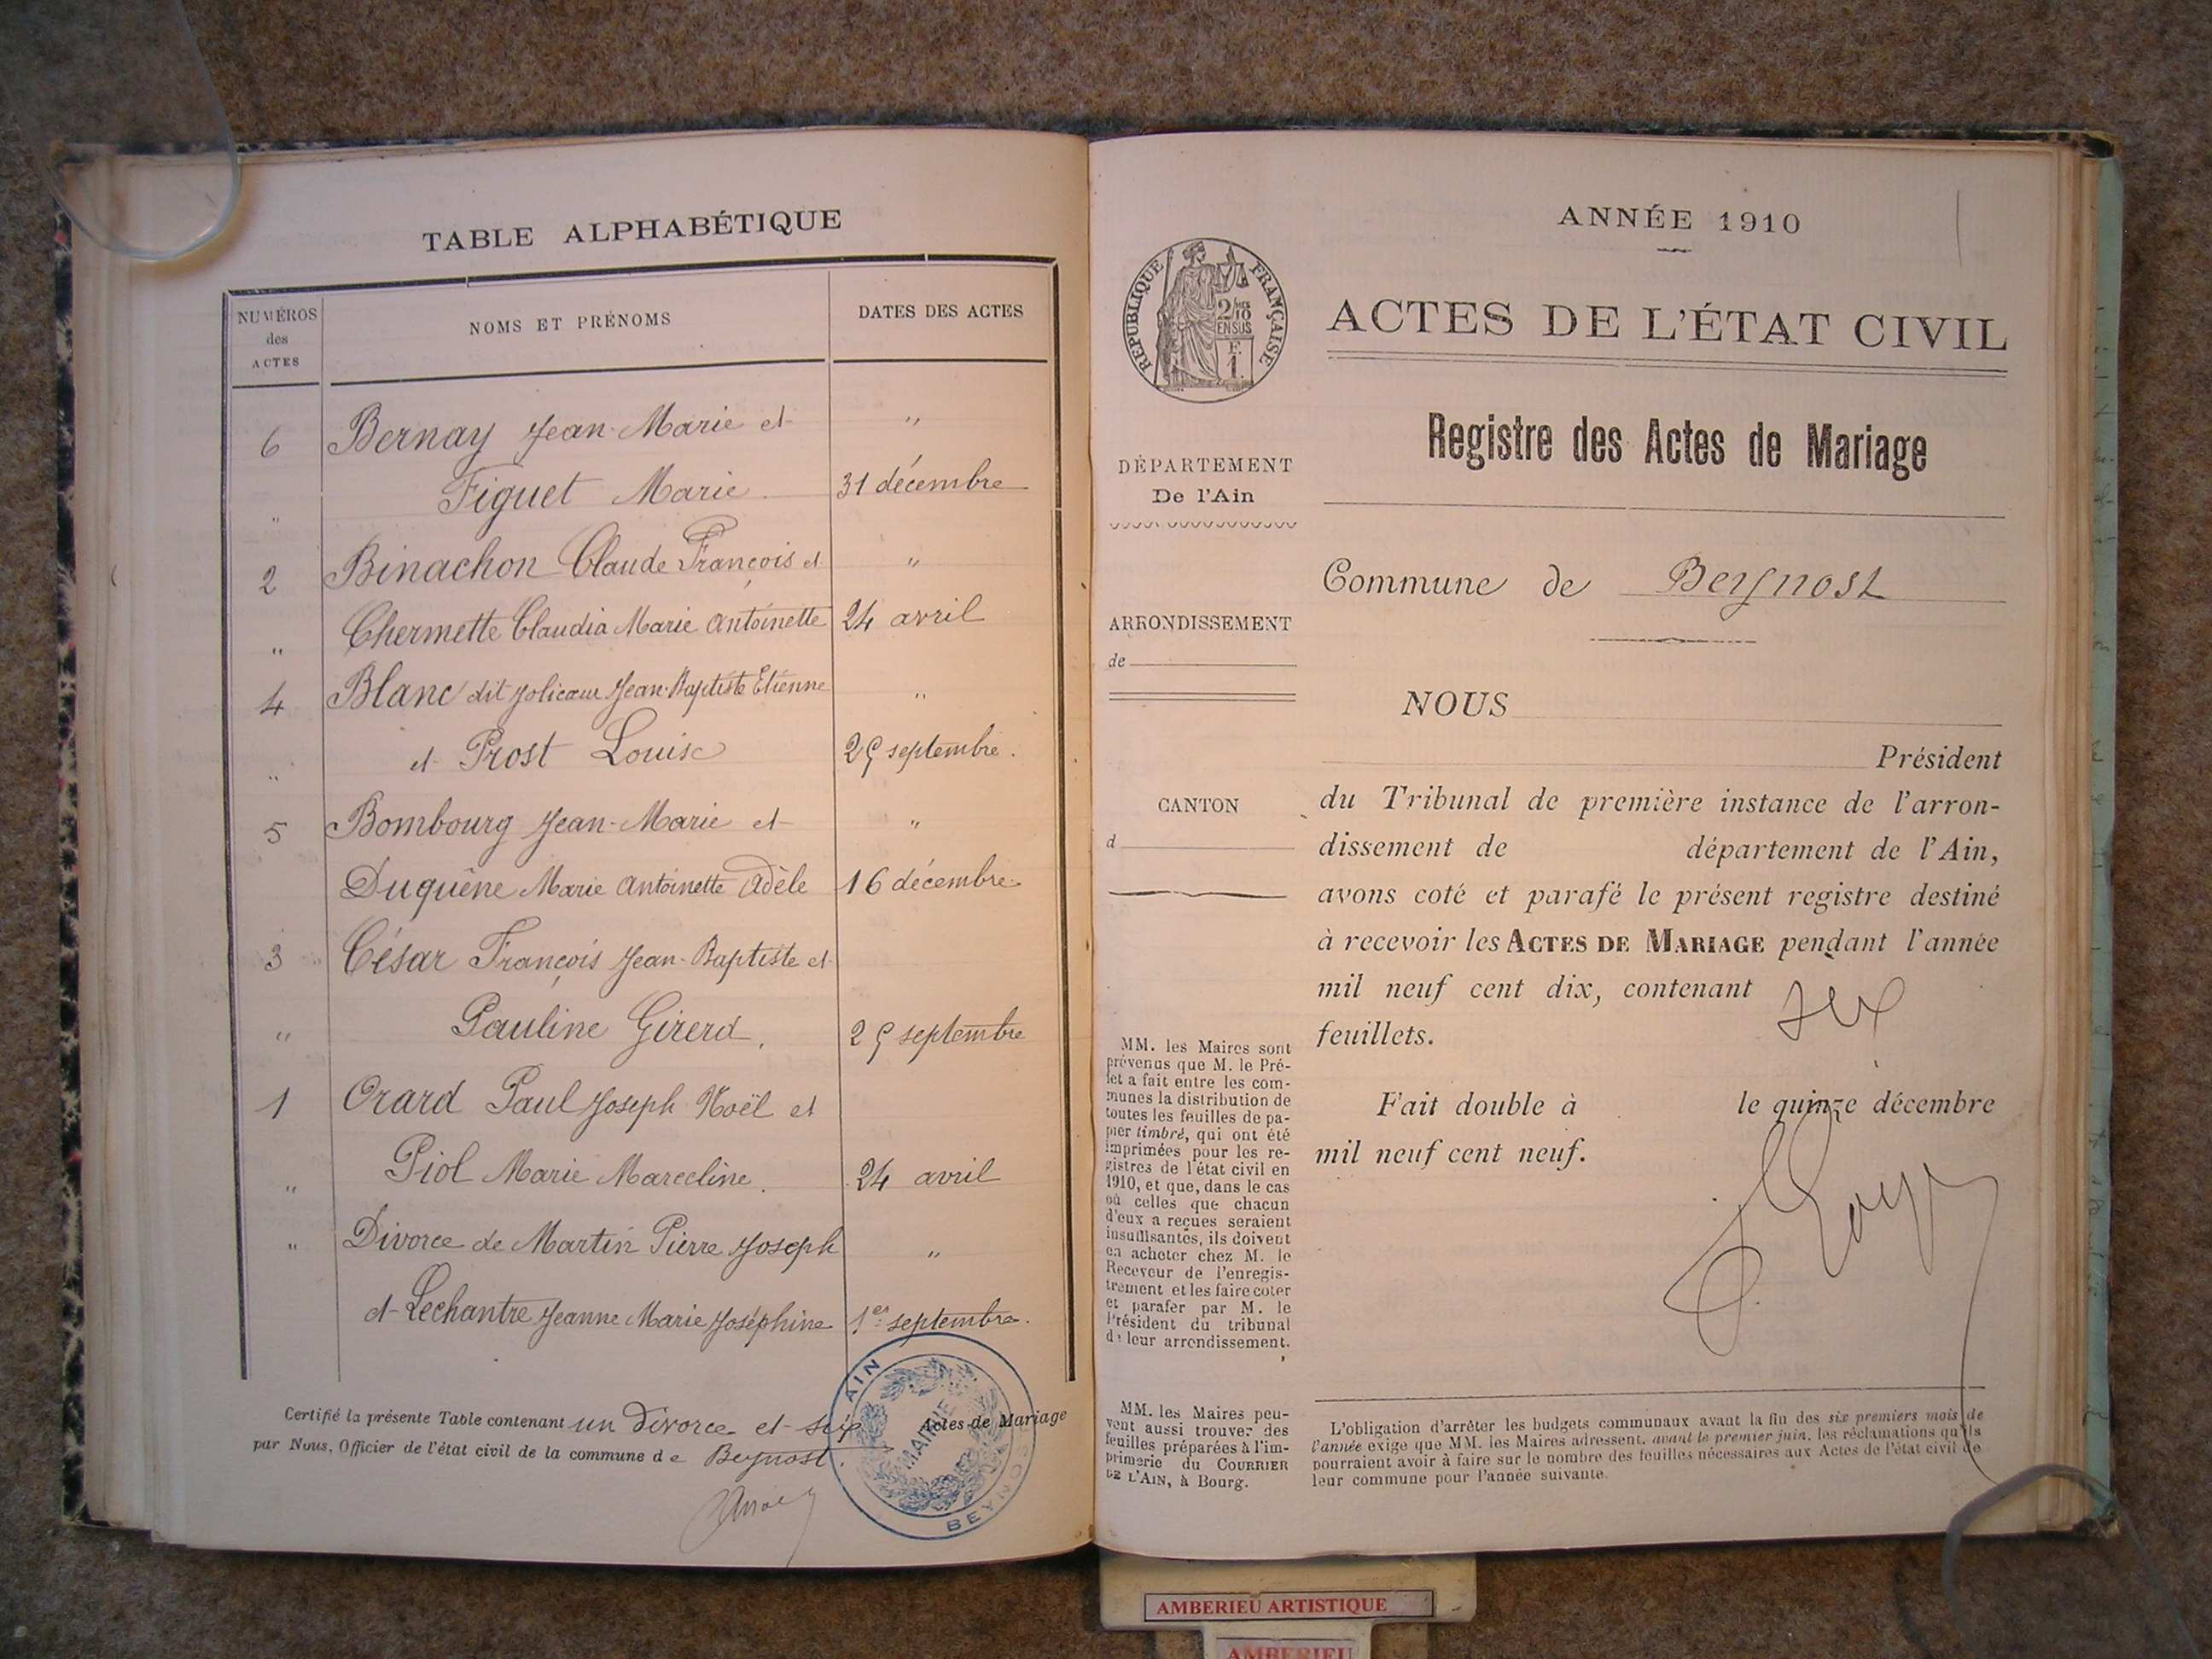 TABLE ALPHABÉTIQUE
NUMÉROS des ACTES
NOMS ET PRÉNOMS
DATES DES ACTES
6 Bernay Jean-Marie et "
" Figuet Marie 31 décembre
2 Binachon Claude François et "
" Chermette Claudia Marie Antoinette 24 avril
4 Blanc dit Jolicœur Jean-Baptiste Etienne "
" et Prost Louise 29 septembre.
5 Bombourg Jean-Marie et "
Duquène Marie Antoinette Adèle 16 décembre
3 César François Jean-Baptiste et
" Pauline Girerd. 29 septembre
1 Orard Paul Joseph Noël et
" Piol Marie Marceline. 24 avril
" Divorce de Martin Pierre Joseph "
et Lechantre Jeanne Marie Joséphine 1er septembre.
Certifié la présente Table contenant un Divorce et six Actes de Mariage
par Nous, Officier de l'état civil de la commune de Beynost.
AIN
MAIRIE
ANNÉE 1910
RÉPUBLIQUE FRANÇAISE
2/10
EN SUS
F.
1.
ACTES DE L'ÉTAT CIVIL
Registre des Actes de Mariage
DÉPARTEMENT
De l'Ain
Commune de Beynost
ARRONDISSEMENT
de
NOUS
Président
CANTON
d
du Tribunal de première instance de l'arron-
dissement de département de l'Ain,
avons coté et parafé le présent registre destiné
à recevoir les ACTES DE MARIAGE pendant l'année
mil neuf cent dix, contenant six
feuillets.
Fait double à le quinze décembre
mil neuf cent neuf.
MM. les Maires sont
prévenus que M. le Pré-
fet a fait entre les com-
munes la distribution de
toutes les feuilles de pa-
pier timbré, qui ont été
imprimées pour les re-
gistres de l'état civil en
1910, et que, dans le cas
où celles que chacun
d'eux a reçues seraient
insuffisantes, ils doivent
en acheter chez M. le
Receveur de l'enregis-
trement et les faire coter
et parafer par M. le
Président du tribunal
de leur arrondissement.
MM. les Maires peu-
vent aussi trouver des
feuilles préparées à l'im-
primerie du COURRIER
DE L'AIN, à Bourg.
L'obligation d'arrêter les budgets communaux avant la fin des six premiers mois de
l'année exige que MM. les Maires adressent, avant le premier juin, les réclamations qu'ils
pourraient avoir à faire sur le nombre des feuilles nécessaires aux Actes de l'état civil de
leur commune pour l'année suivante.
AMBERIEU ARTISTIQUE
AMBERIEU